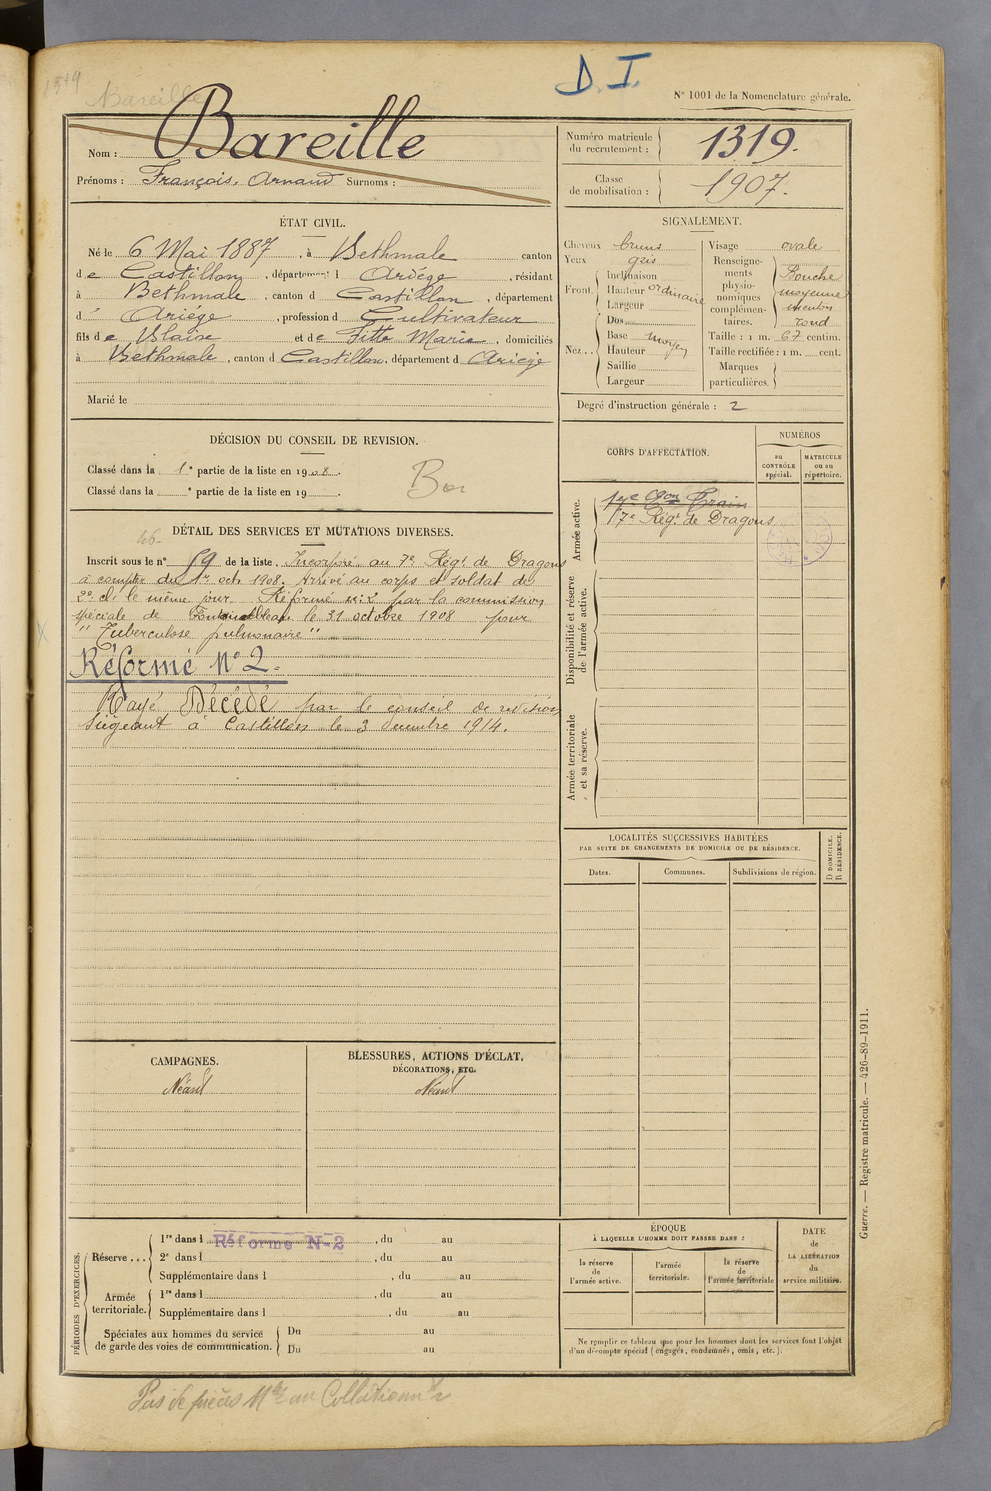 D. I.
N° 1001 de la Nomenclature générale.
1319
Bareille
Nom : Bareille
Prénoms : François, Arnaud Surnoms :
Numéro matricule du recrutement : 1319.
Classe de mobilisation : 1907.
ÉTAT CIVIL.
Né le 6 Mai 1887, à Bethmale canton
de Castillon, département d Ariége, résidant
à Bethmale, canton d Castillon, département
d' Ariége, profession d Cultivateur
fils de Blaise et de Titte Marie, domiciliés
à Bethmale, canton d Castillon, département d Ariége
Marié le
SIGNALEMENT.
Cheveux bruns
Yeux gris
Front. Inclinaison
Hauteur ordinaire
Largeur
Nez.. Dos
Base moyen
Hauteur
Saillie
Largeur
Visage ovale
Renseignements physionomiques complémentaires. Bouche moyenne menton rond
Taille : 1 m. 67 centim.
Taille rectifiée : 1 m. cent.
Marques particulières.
Degré d'instruction générale : 2
DÉCISION DU CONSEIL DE REVISION.
Classé dans la 1e partie de la liste en 1908.
Classé dans la e partie de la liste en 19
Bon
DÉTAIL DES SERVICES ET MUTATIONS DIVERSES.
Inscrit sous le n° 59 de la liste. Incorporé au 7e Régt de Dragons
à compter du 1er oct. 1908. Arrivé au corps et soldat de
2e cl. le même jour. Réformé n: 2 par la commission
spéciale de Fontainebleau le 31 octobre 1908 pour
"Tuberculose pulmonaire"
Réformé N° 2.
Rayé Décédé par le conseil de revision
siégeant à Castillon le 3 decembre 1914.
CORPS D'AFFECTATION.
NUMÉROS
au CONTRÔLE spécial.
MATRICULE ou au répertoire.
Armée active.
17e Eon Train
7e Régt de Dragons
Disponibilité et réserve de l'armée active.
Armée territoriale et sa réserve.
LOCALITÉS SUCCESSIVES HABITÉES
PAR SUITE DE CHANGEMENTS DE DOMICILE OU DE RÉSIDENCE.
Dates.
Communes.
Subdivisions de région.
D DOMICILE.
R RÉSIDENCE.
CAMPAGNES.
Néant
BLESSURES, ACTIONS D'ÉCLAT,
DÉCORATIONS, ETC.
Néant
PÉRIODES D'EXERCICES.
Réserve... 1re dans l Réformé N-2, du au
2e dans l, du au
Supplémentaire dans l, du au
Armée territoriale. 1re dans l, du au
Supplémentaire dans l, du au
Spéciales aux hommes du service de garde des voies de communication. Du au
Du au
ÉPOQUE
À LAQUELLE L'HOMME DOIT PASSER DANS :
la réserve de l'armée active.
l'armée territoriale.
la réserve de l'armée territoriale
DATE de LA LIBÉRATION du service militaire.
Ne remplir ce tableau que pour les hommes dont les services font l'objet
d'un décompte spécial (engagés, condamnés, omis, etc.).
Guerre. — Registre matricule. — 426-89-1911.
Pas de pièces